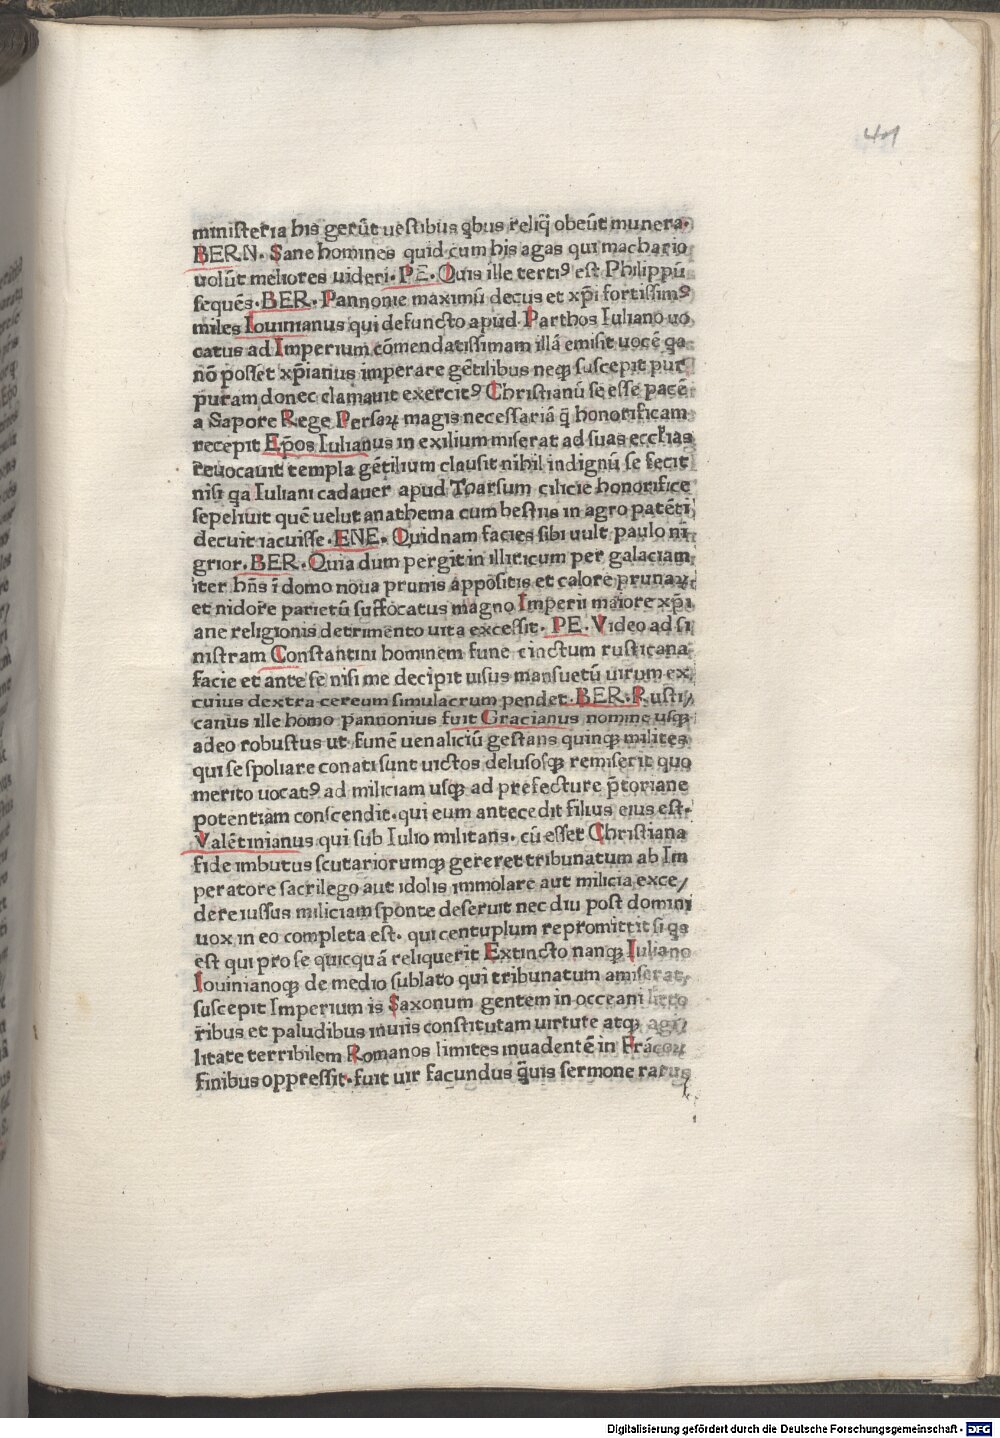 41
ministeria his gerūt uestibus qbus reliq̄ obeūt munera.
BERN. Sane homines quid cum his agas qui machario
uolūt meliores uideri. PE. Quis ille terti⁹ est Philippū
sequēs. BER. Pannonie maximū decus et xp̄i fortissim⁹
miles Iouinianus qui defuncto apud Parthos Iuliano uo
catus ad Imperium cōmendatissimam illā emisit uocē qa
nō posset xp̄ianus imperare gētilibus neqꝫ suscepit pur
puram donec clamauit exercit⁹ Christianū se esse pacē
a Sapore Rege Persaꝝ magis necessariā q̄ honorificam
recepit Ep̄os Iulianus in exilium miserat ad suas eccl̄ias
reuocauit templa gētilium clausit nihil indignū se fecit
nisi qa Iuliani cadauer apud Tharsum cilicie honorifice
sepeliuit quē uelut anathema cum bestiis in agro patēti
decuit iacuisse. ENE. Quidnam facies sibi uult paulo ni
grior. BER. Quia dum pergit in illiricum per galaciam
iter hn̄s ī domo noua prunis appositis et calore prunaꝝ
et nidore parietū suffocatus magno Imperii maiore xp̄i
ane religionis detrimento uita excessit. PE. Video ad si
nistram Constantini hominem fune cinctum rusticana
facie et ante se nisi me decipit uisus mansuetū uirum ex
cuius dextra cereum simulacrum pendet. BER. Rusti/
canus ille homo pannonius fuit Gracianus nomine usqꝫ
adeo robustus ut funē uenaliciū gestans quinqꝫ milites
qui se spoliare conati sunt uictos delusosqꝫ remiserit quo
merito uocat⁹ ad miliciam usqꝫ ad prefecture p̄toriane
potentiam conscendit. qui eum antecedit filius eius est.
Valētinianus qui sub Iulio militans. cū esset Christiana
fide imbutus scutariorumqꝫ gereret tribunatum ab Im
peratore sacrilego aut idolis immolare aut milicia exce/
dere iussus miliciam sponte deseruit nec diu post domini
uox in eo completa est. qui centuplum repromittit si qs
est qui pro se quicquā reliquerit Extincto nanqꝫ Iuliano
Iouinianoqꝫ de medio sublato qui tribunatum amiserat
suscepit Imperium is Saxonum gentem in occeani litto
ribus et paludibus inuiis constitutam uirtute atqꝫ agi/
litate terribilem Romanos limites inuadentē in Frācoꝝ
finibus oppressit. fuit uir facundus q̄uis sermone rarus
Digitalisierung gefördert durch die Deutsche Forschungsgemeinschaft - DFG